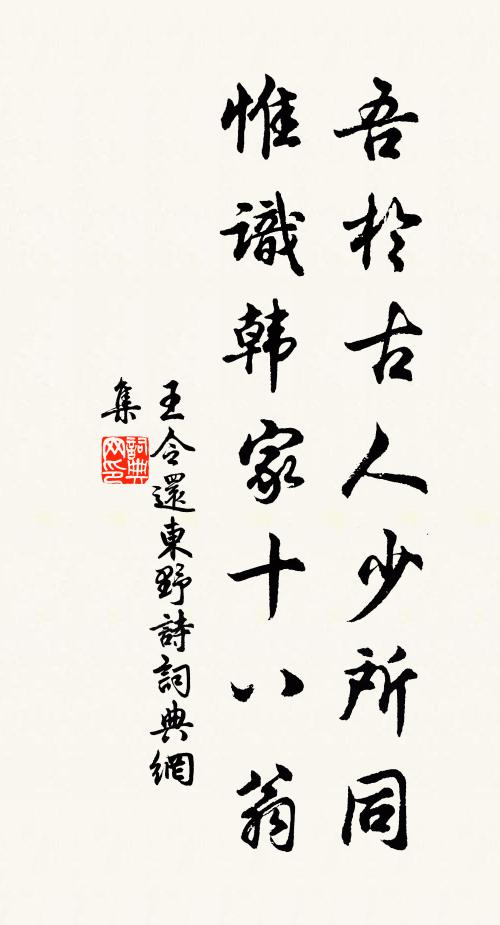 吾於古人少所同
惟識韩家十八翁
王令還東野詩詞典網
集
詞典網印